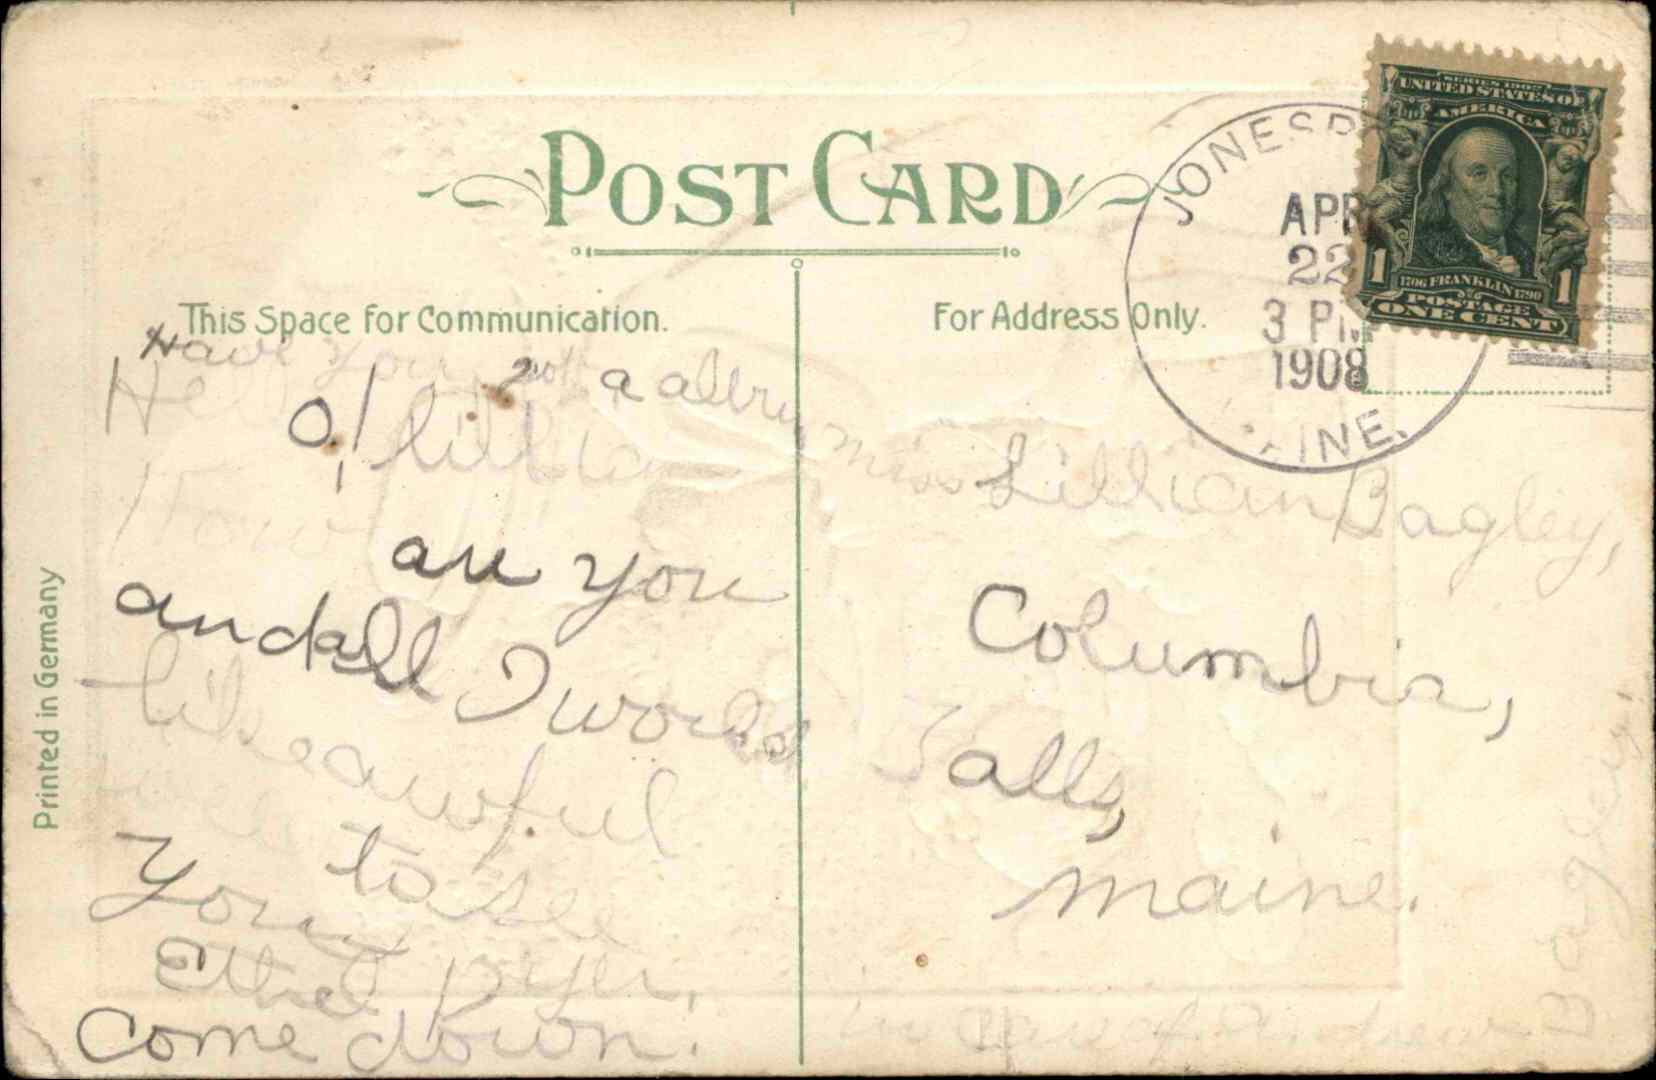 POST CARD
This Space for Communication.
For Address Only.
Printed in Germany
JONESP
APR
22
3 PM
1908
INE.
SERIES 1902
UNITED STATES OF
AMERICA
1 1
1706 FRANKLIN 1790
POSTAGE
ONE CENT
Have you got a album
Hello! Lillian
How are you
and all I would
like awful
well to see
you
Ethel
Come down.
Miss Lillian Bagley,
Columbia,
Falls,
Maine.
In Care of Andrew
Bagley.